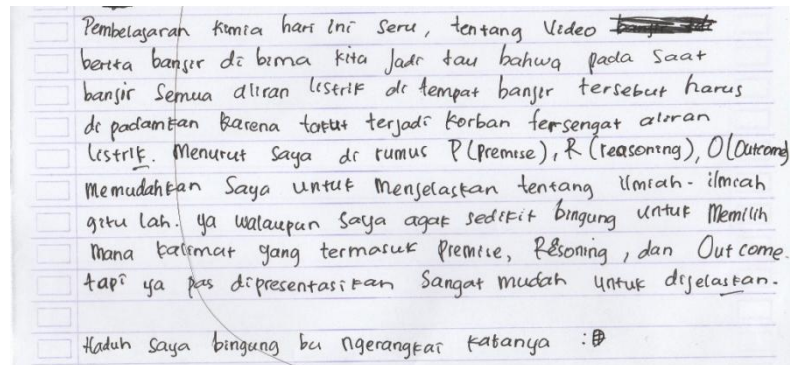 Pembelajaran kimia hari ini seru, tentang video
berita banjir di bima kita jadi tau bahwa pada saat
banjir semua aliran listrik di tempat banjir tersebut harus
di padamkan karena takut terjadi korban tersengat aliran
listrik. Menurut saya di rumus P (premise), R (reasoning), O (Outcome)
memudahkan saya untuk menjelaskan tentang ilmiah-ilmiah
gitu lah. ya walaupun saya agak sedikit bingung untuk memilih
mana kalimat yang termasuk premise, Resoning, dan Out come.
tapi ya pas dipresentasikan sangat mudah untuk dijelaskan.
Haduh saya bingung bu ngerangkai katanya :D